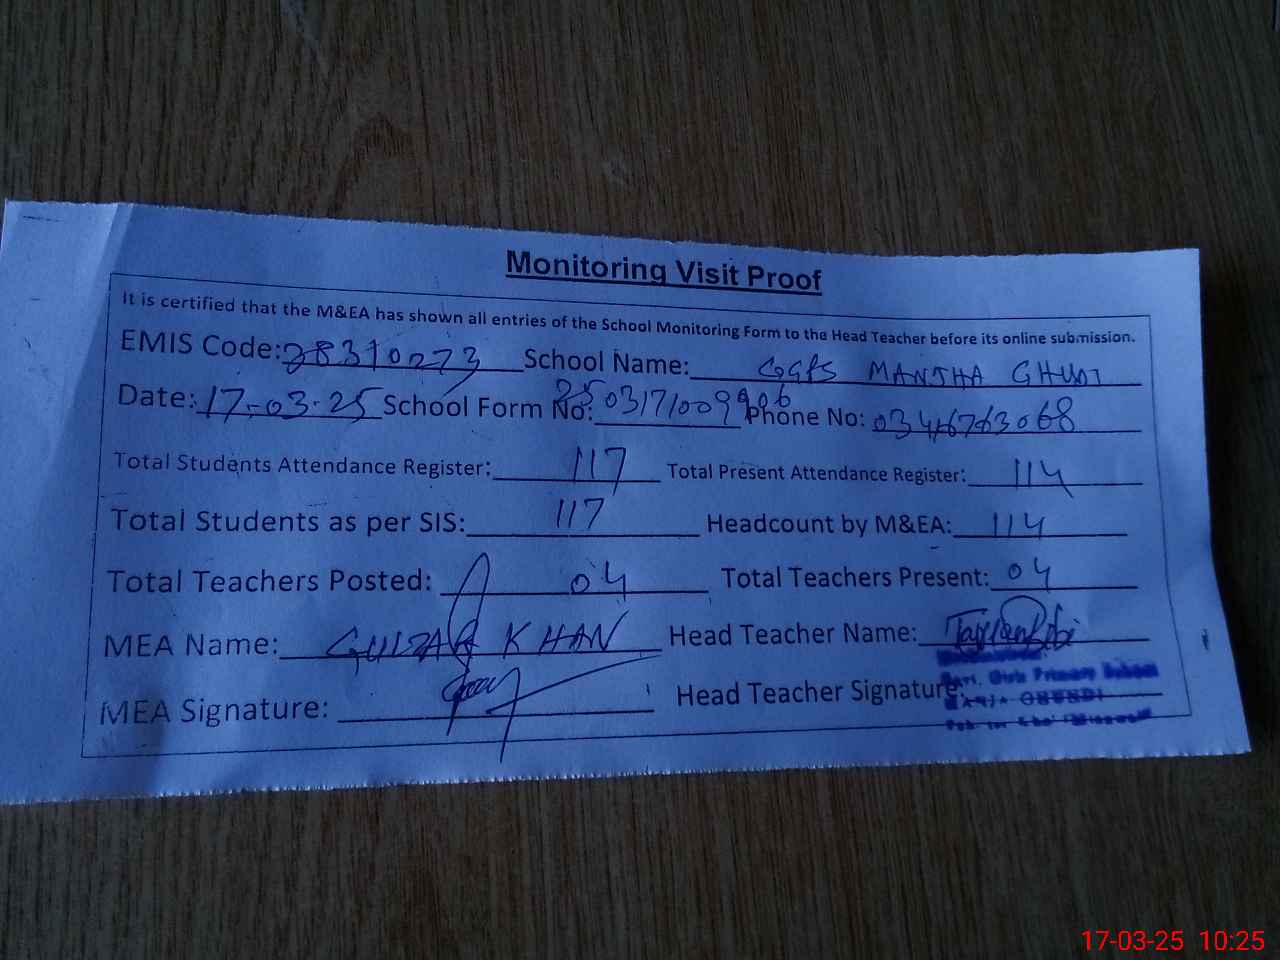 Monitoring Visit Proof
It is certified that the M&EA has shown all entries of the School Monitoring Form to the Head Teacher before its online submission.
EMIS Code: 38310273 School Name: GGPS MANJHA GHUNDI
Date: 17-03-25 School Form No: 2503171009906 Phone No: 03416763068
Total Students Attendance Register: 117 Total Present Attendance Register: 114
Total Students as per SIS: 117 Headcount by M&EA: 114
Total Teachers Posted: 04 Total Teachers Present: 04
MEA Name: GULZAR KHAN Head Teacher Name:
MEA Signature: Head Teacher Signature:
Govt. Girls Primary School
17-03-25 10:25